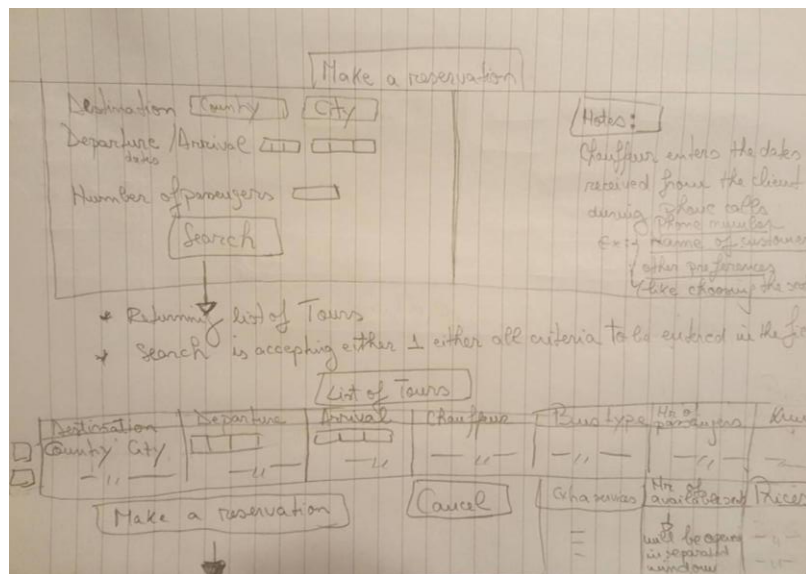 Make a reservation
Destination County City
Departure /Arrival
dates
Number of passengers
Search
Notes:
Chauffeur enters the dates
received from the client
during phone calls
phone number
Ex: name of customer
other preferences
like choosing the
* Returning list of Tours
* Search is accepting either 1 either all criteria to be entered in the
List of Tours
Destination Departure Arrival Chauffeur Bus type Nr of passengers
County City
Make a reservation Cancel
Nr of available Prices
will be open
in separated
window